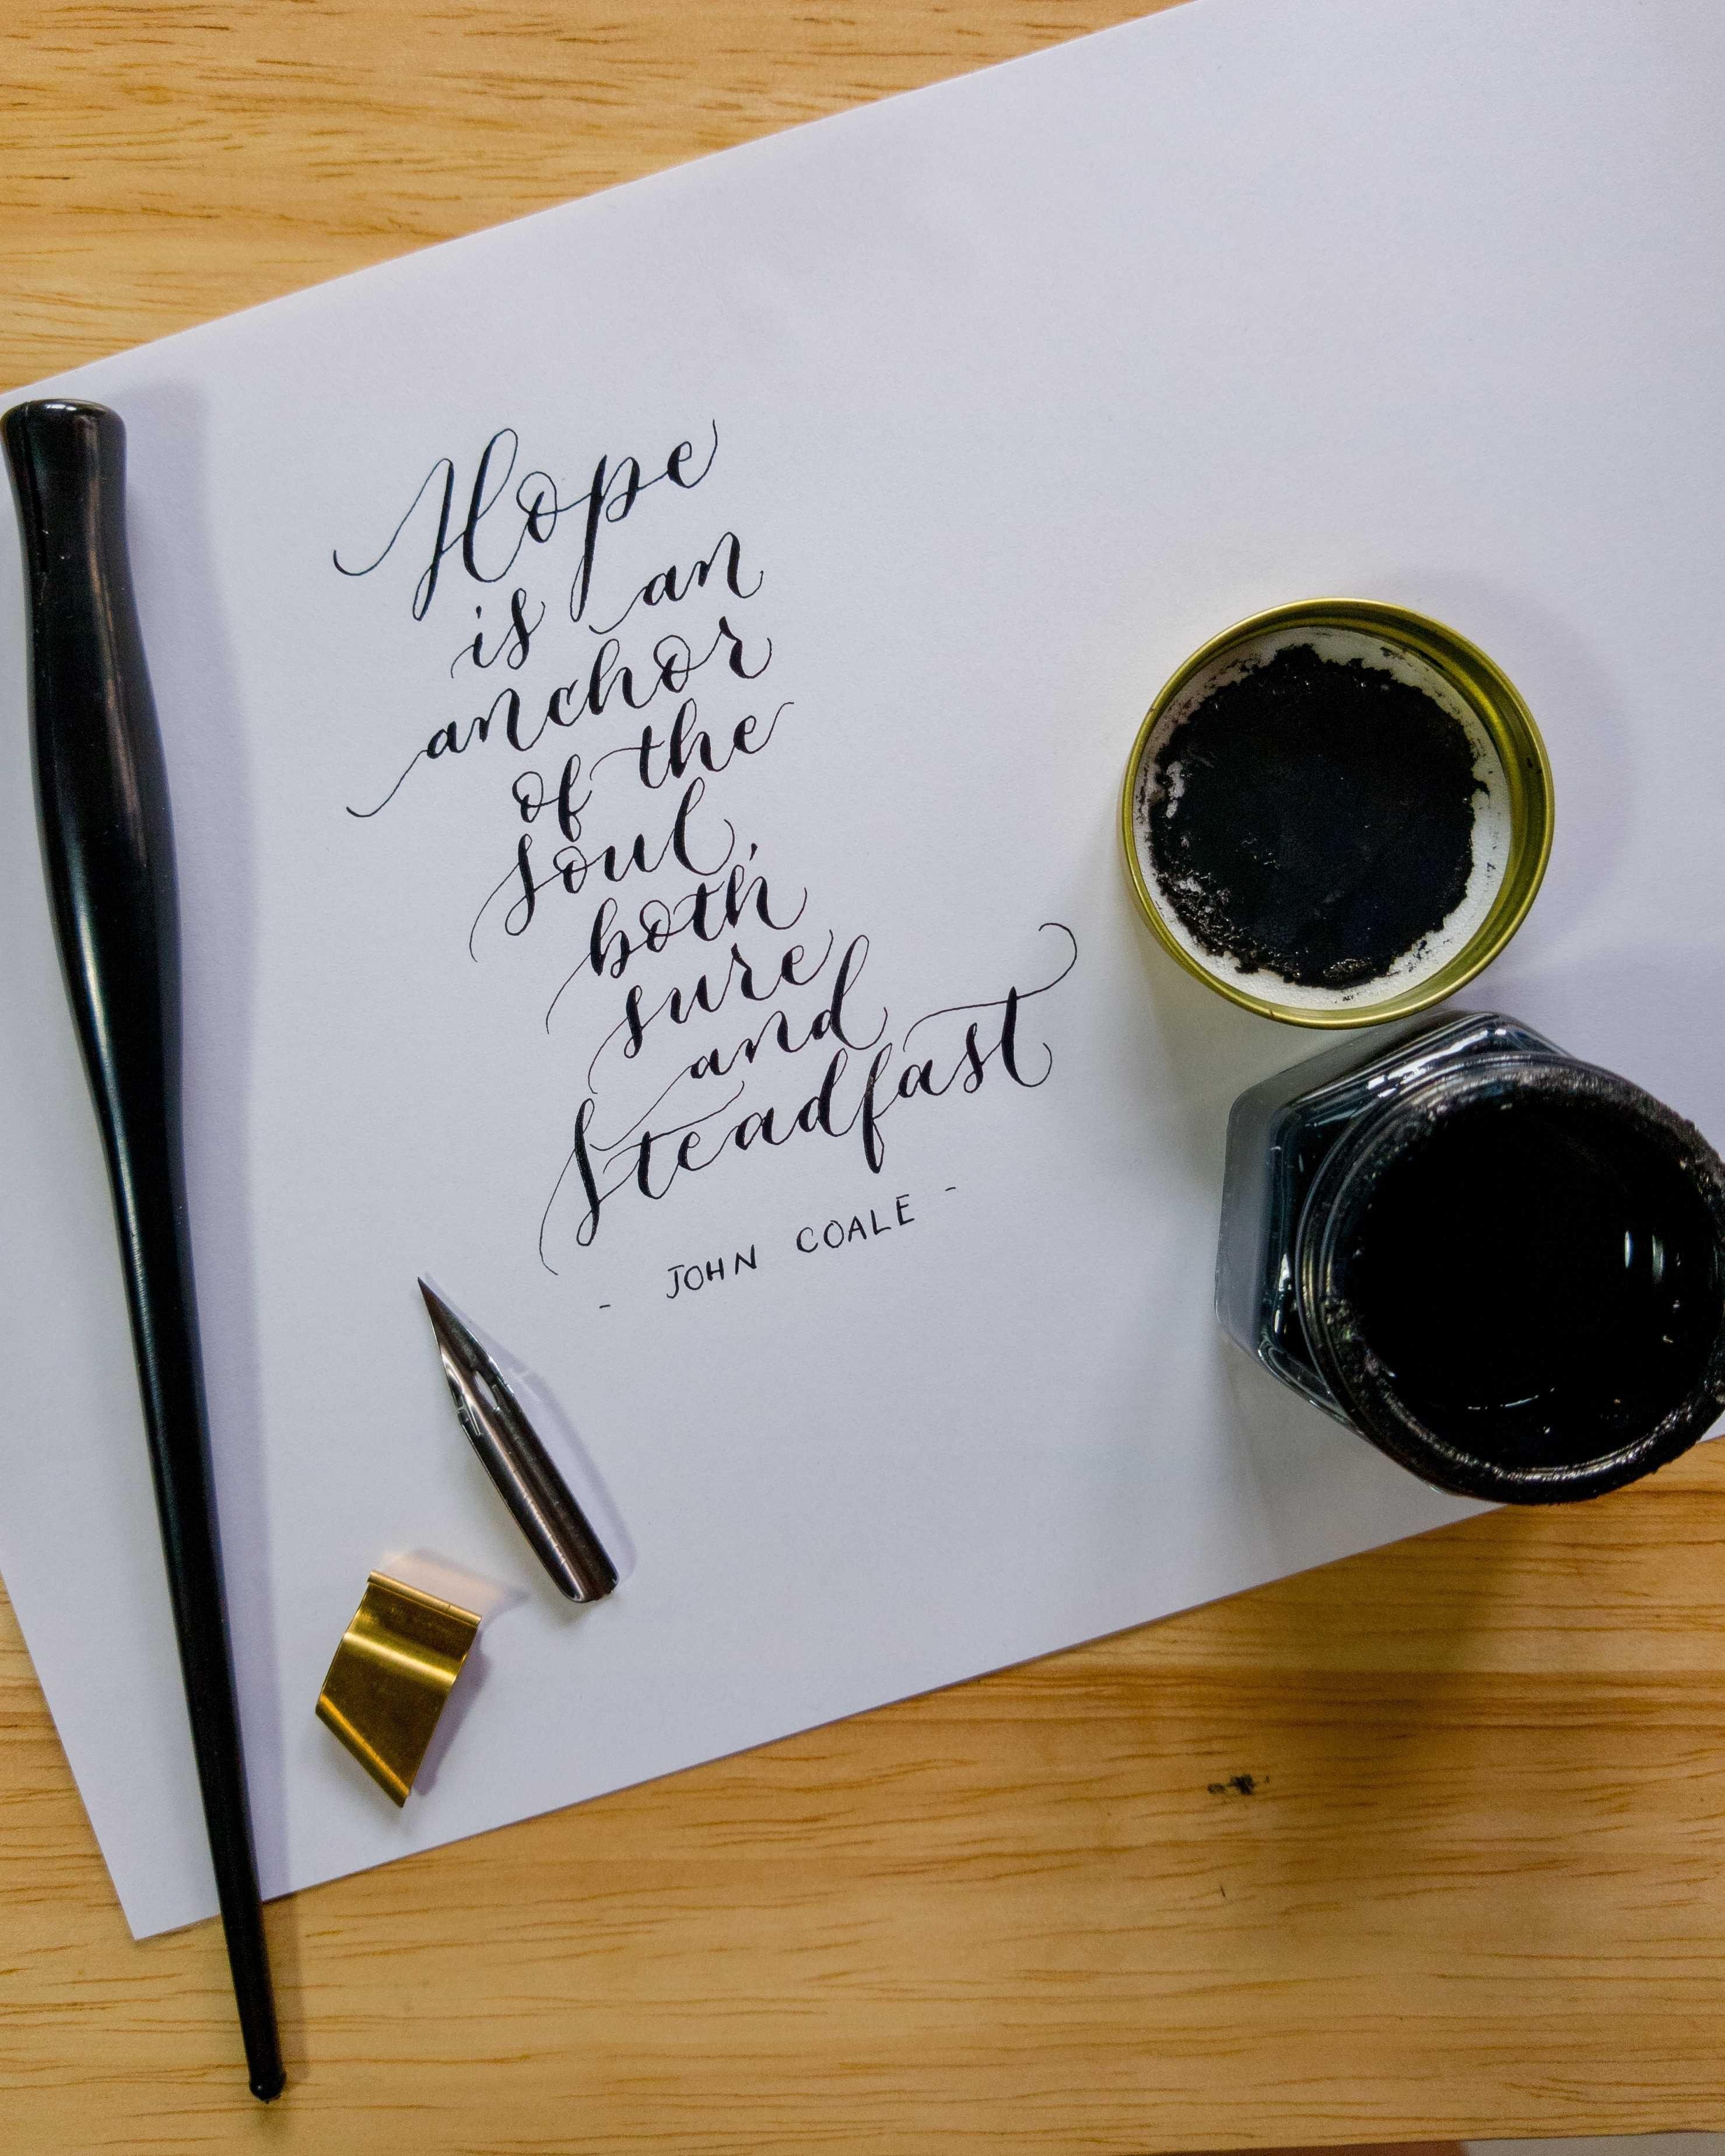 Hope
is an
anchor
of the
soul,
both
sure
and
Steadfast
- JOHN COALE -